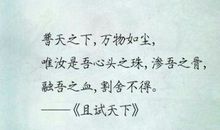 普天之下，万物如尘，
唯汝是吾心头之珠，渗吾之骨，
融吾之血，割舍不得。
——《且试天下》